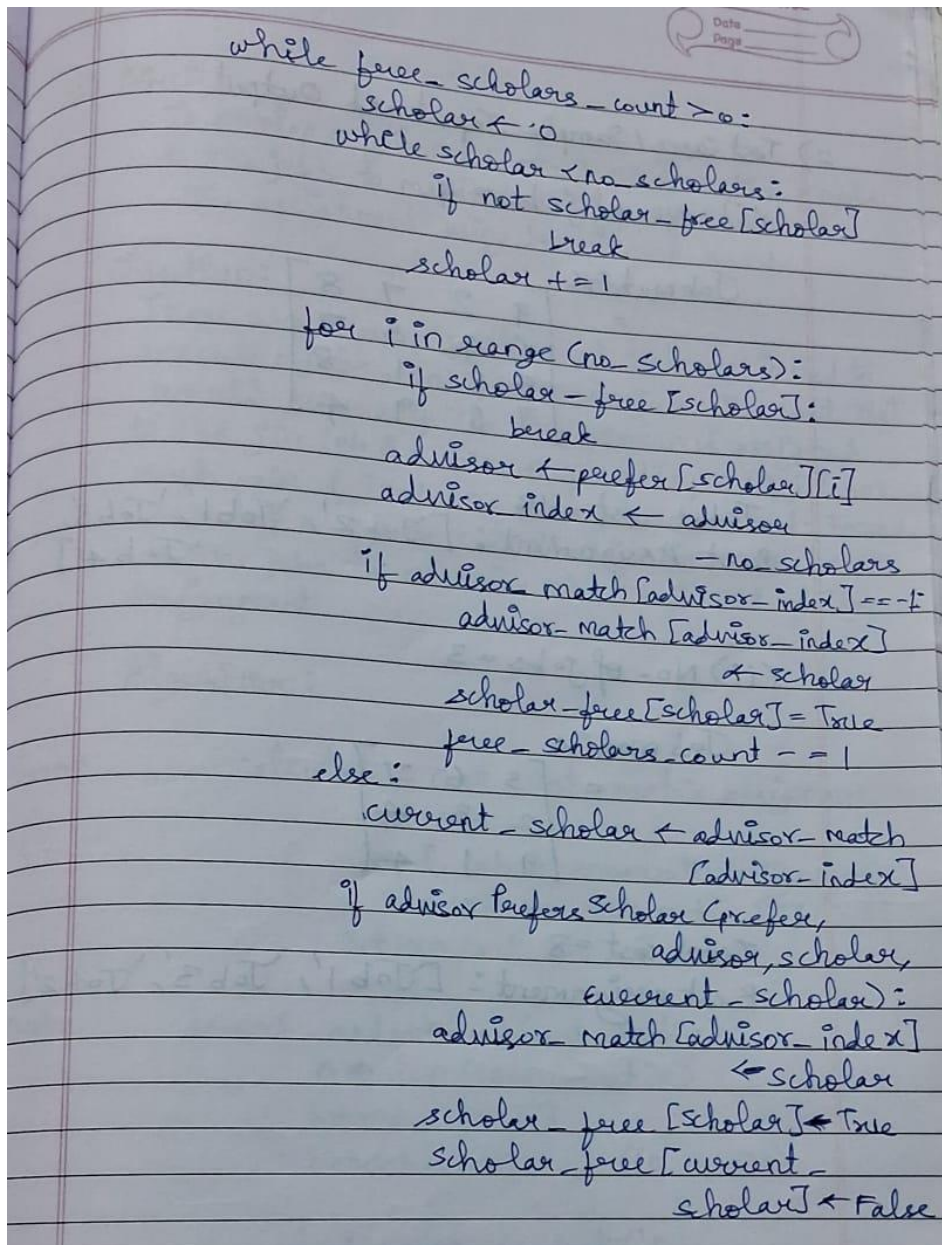 Date
Page
while free_scholars_count >0:
scholar ← 0
while scholar < no_scholars:
if not scholar_free[scholar]
break
scholar += 1
for i in range (no_scholars):
if scholar_free [scholar]:
break
advisor ← prefer [scholar][i]
advisor index ← advisor
- no_scholars
if advisor_match [advisor_index] == -1:
advisor_match [advisor_index]
← scholar
scholar_free[scholar] = True
free_scholars_count -= 1
else:
current_scholar ← advisor_match
[advisor_index]
if advisor Prefers Scholar (prefer,
advisor, scholar,
current_scholar):
advisor_match [advisor_index]
← scholar
scholar_free [scholar] ← True
scholar_free [current_
scholar] ← False